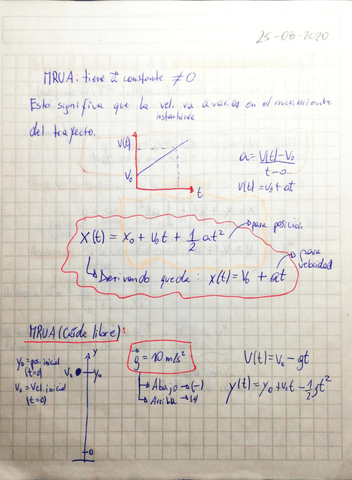 25-08-2020
MRUA: tiene a⃗ constante ≠ 0
Esto significa que la vel. va a variar en el movimiento
instantánea
del trayecto.
V(t)
V₀
t
a = V(t) - V₀ / t - 0
V(t) = V₀ + at
X(t) = X₀ + V₀t + 1/2 at² → para posición
↳ Derivando queda: x(t) = V₀ + at → para velocidad
MRUA (Caída libre):
y₀ = pos. inicial
(t=0)
V₀ = Vel. inicial
(t=0)
y
V₀
y₀
0
g⃗ = 10 m/s²
→ Abajo → (-)
→ Arriba → (+)
V(t) = V₀ - gt
y(t) = y₀ + v₀t - 1/2 gt²